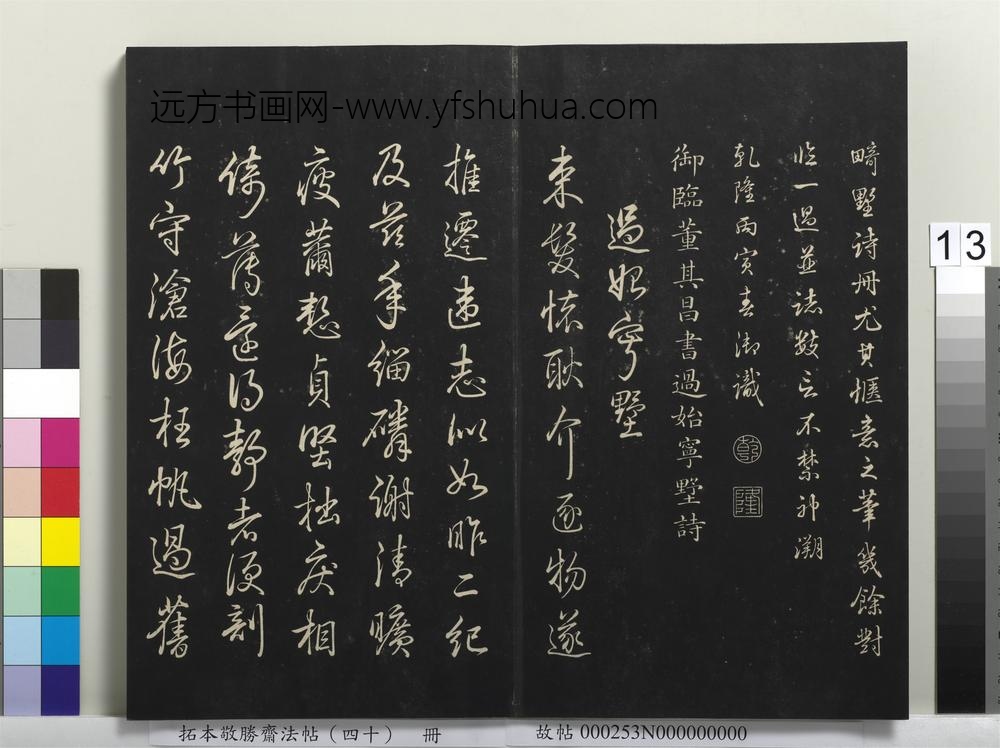 远方书画网-www.yfshuhua.com
畸墅詩冊尤其愜意之筆幾餘對
臨一過並誌數言不禁神溯
乾隆丙寅春御識 乾 隆
御臨董其昌書過始寧墅詩
過始寧墅
束髮懷耿介逐物遂
推遷違志似如昨二紀
及茲年緇磷謝清曠
疲薾慙貞堅拙疾相
倚薄還得靜者便剖
竹守滄海枉帆過舊
13
拓本敬勝齋法帖（四十） 冊
故帖 000253N000000000